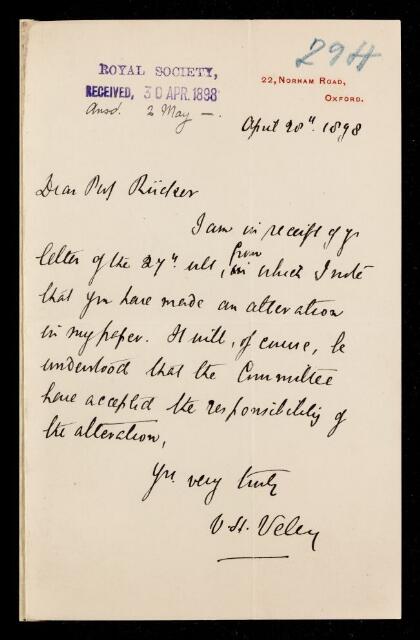 294
ROYAL SOCIETY,
RECEIVED, 30 APR. 1898
Ansd. 2 May —.
22, NORHAM ROAD,
OXFORD.
April 28th. 1898
Dear Prof Rücker
I am in receipt of yr
letter of the 27th. ult, from which I note
that you have made an alteration
in my paper. It will, of course, be
understood that the Committee
have accepted the responsibility of
the alteration,
Yrs. very truly
V. H. Veley